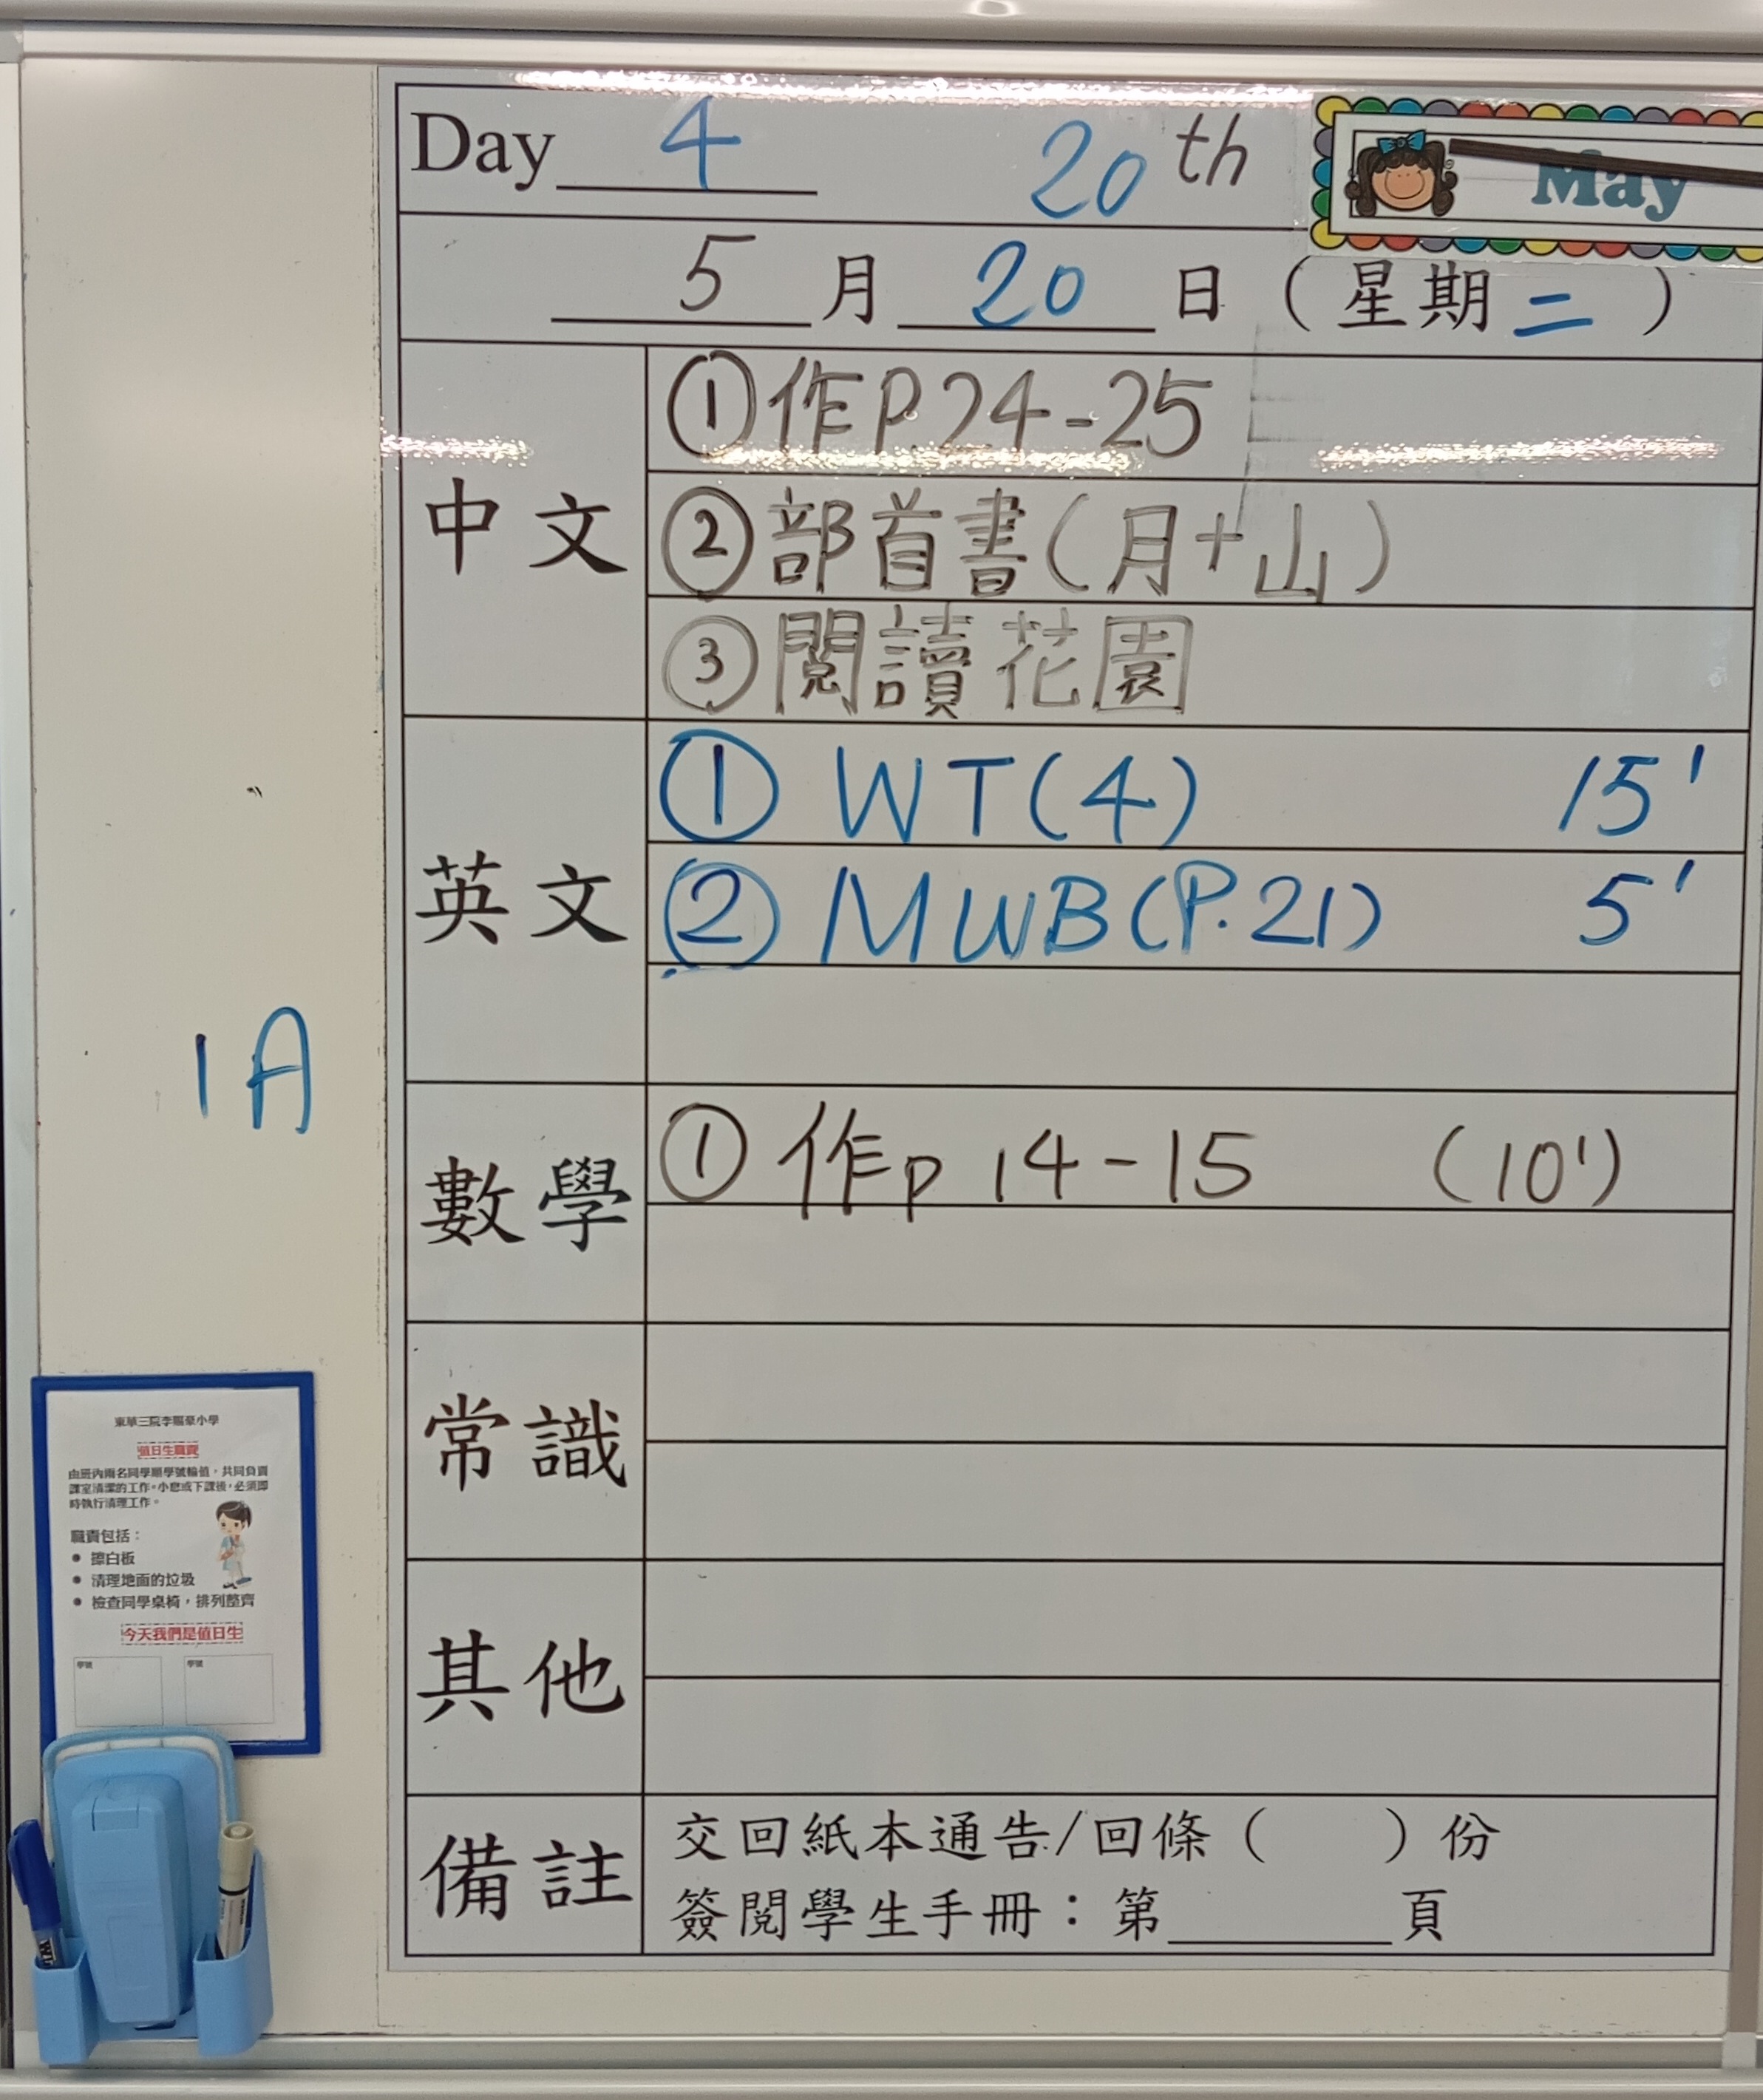 Day 4 20th May
5 月 20 日 （星期二）
中文
①作P.24-25
②部首書(月+山)
③閱讀花園
英文
① WT(4) 15'
② MWB(P.21) 5'
1A
數學
① 作p 14-15 (10')
常識
其他
備註
交回紙本通告/回條（ ）份
簽閱學生手冊：第 頁
東華三院李賜豪小學
值日生職責
由班內兩名同學順學號輪值，共同負責
課室清潔的工作。小息或下課後，必須即
時執行清理工作。
職責包括：
• 擦白板
• 清理地面的垃圾
• 檢查同學桌椅，排列整齊
今天我們是值日生
學號 學號